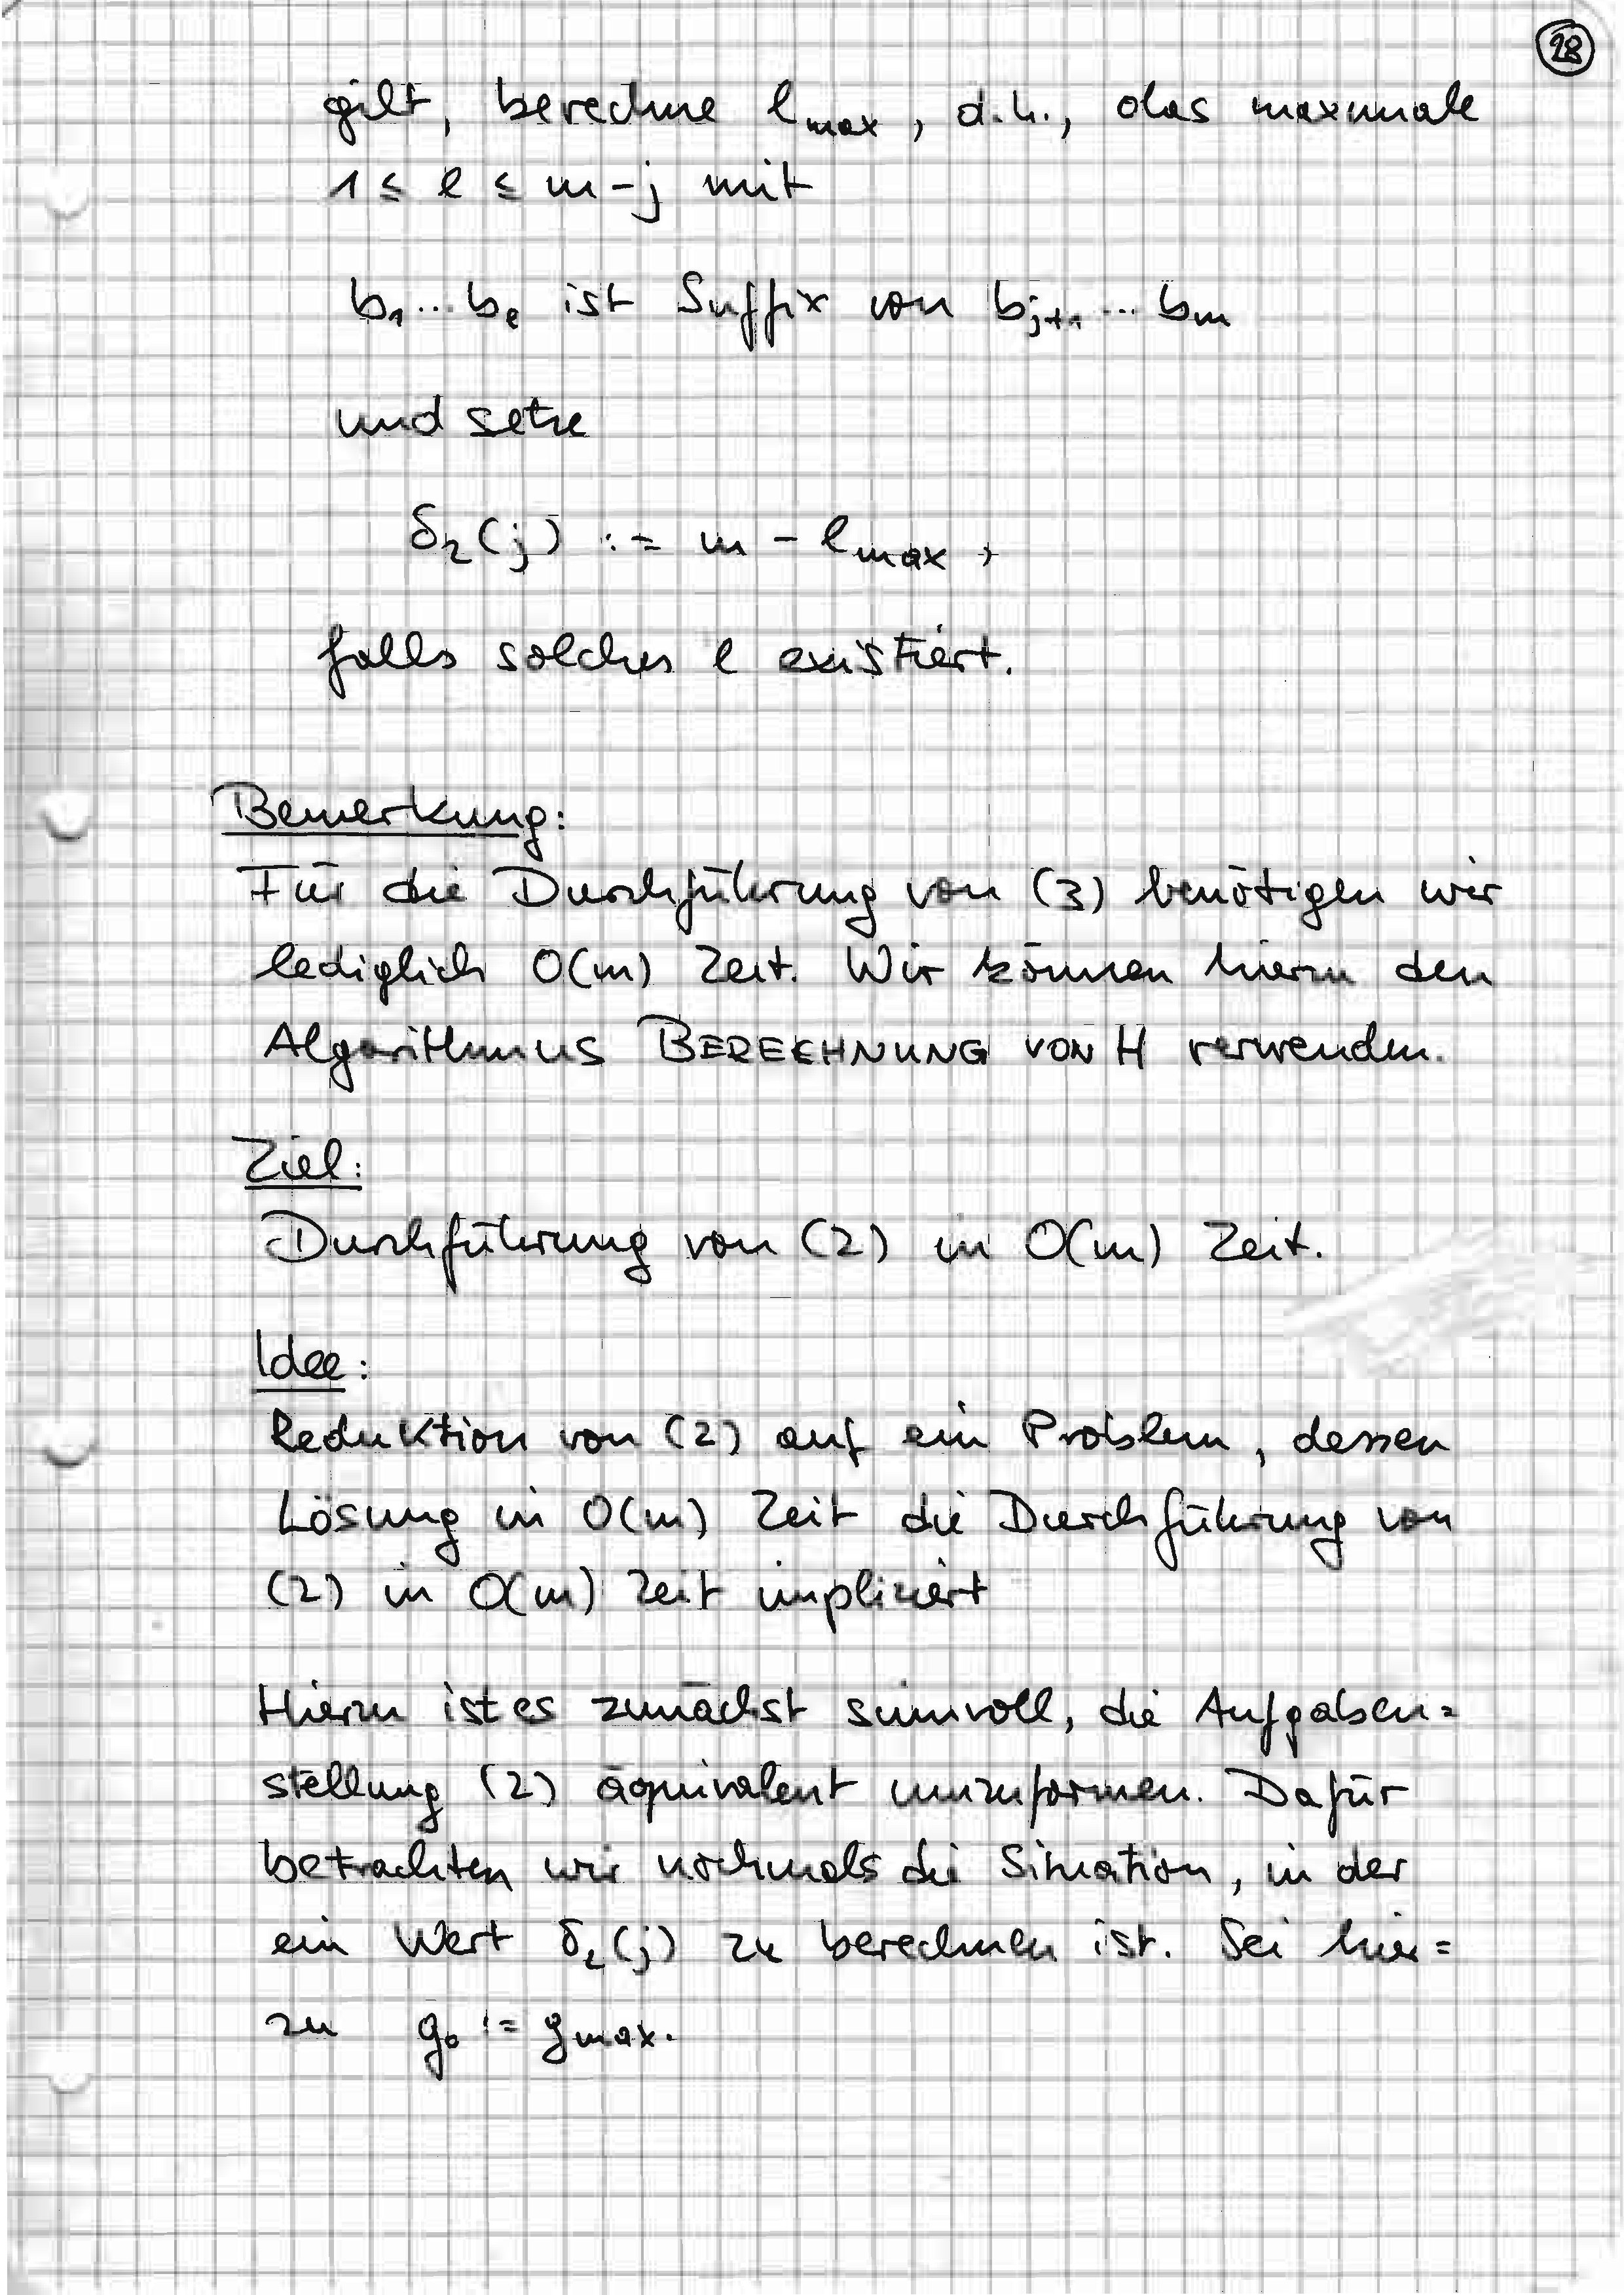 28
gilt, berechne l_max, d.h., das maximale
1 ≤ l ≤ m-j mit
b_1...b_l ist Suffix von b_{j+1}...b_m
und setze
δ_2(j) := m - l_max,
falls solches l existiert.
Bemerkung:
Für die Durchführung von (3) benötigen wir
lediglich O(m) Zeit. Wir können hierzu den
Algorithmus BERECHNUNG VON H verwenden.
Ziel:
Durchführung von (2) in O(m) Zeit.
Idee:
Reduktion von (2) auf ein Problem, dessen
Lösung in O(m) Zeit die Durchführung von
(2) in O(m) Zeit impliziert
Hierzu ist es zunächst sinnvoll, die Aufgaben=
stellung (2) äquivalent umzuformen. Dafür
betrachten wir nochmals die Situation, in der
ein Wert δ_2(j) zu berechnen ist. Sei hier=
zu g_0 := g_max.